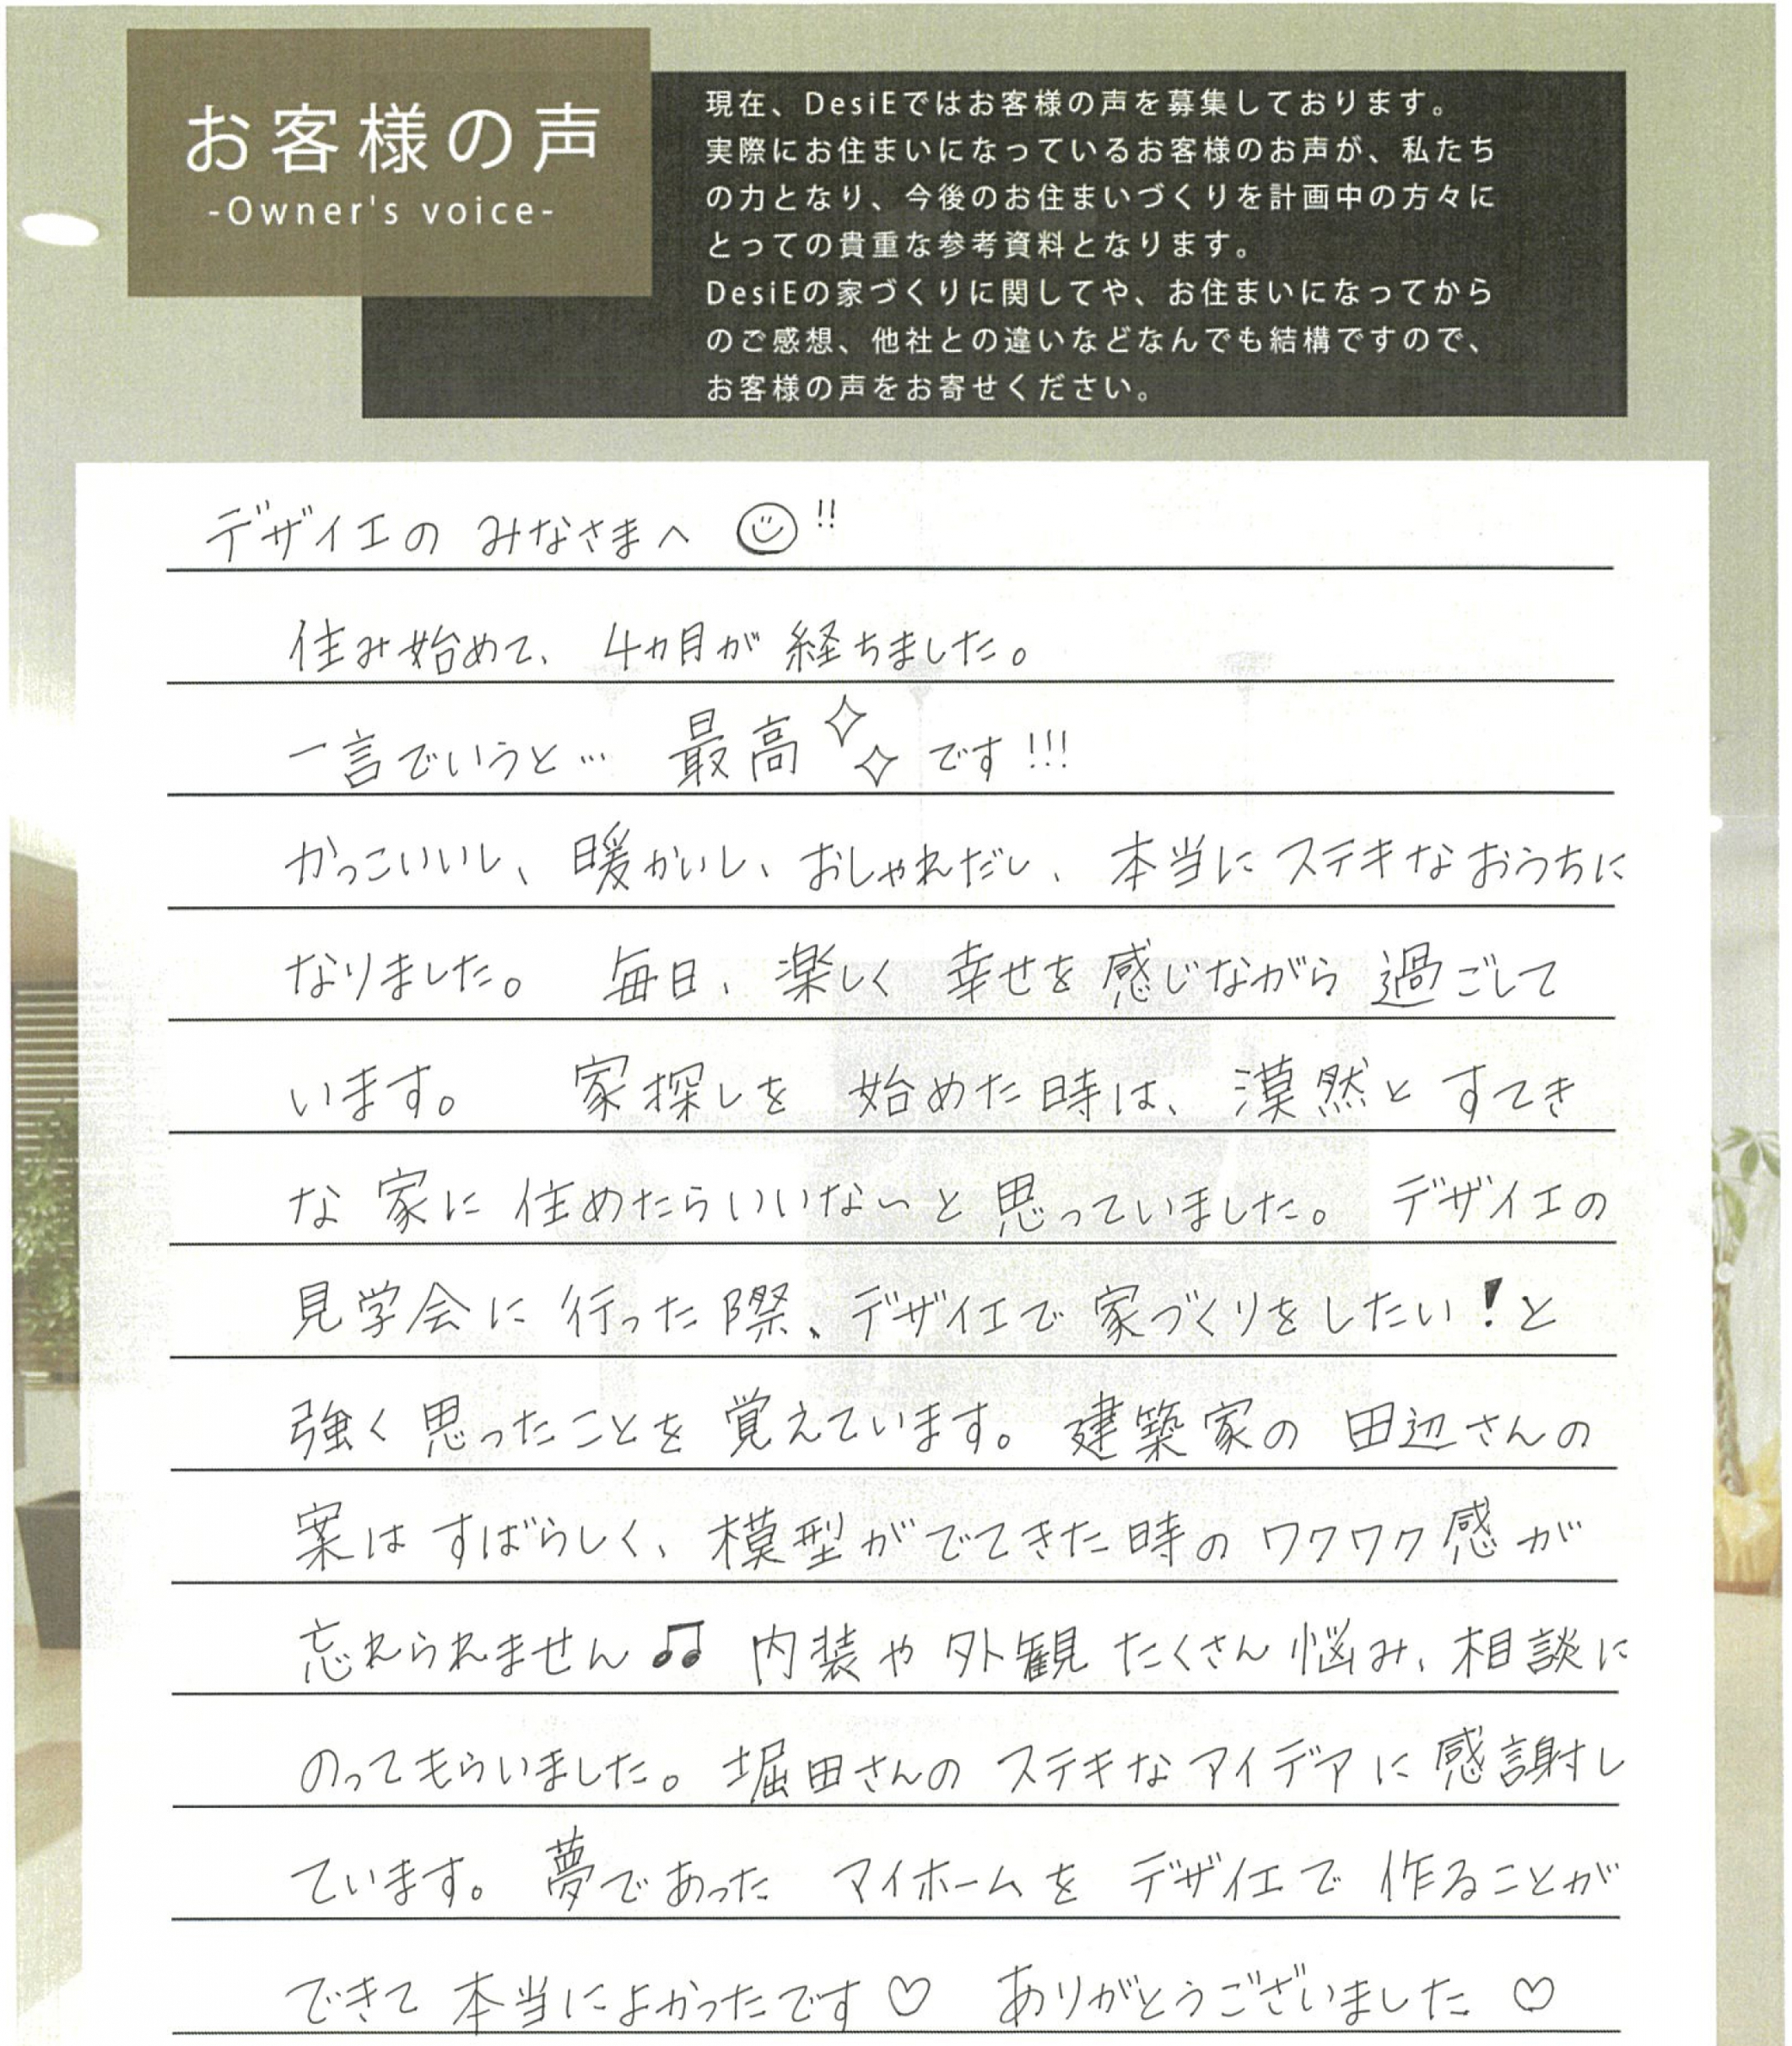 お客様の声
-Owner's voice-
現在、DesiEではお客様の声を募集しております。
実際にお住まいになっているお客様のお声が、私たち
の力となり、今後のお住まいづくりを計画中の方々に
とっての貴重な参考資料となります。
DesiEの家づくりに関してや、お住まいになってから
のご感想、他社との違いなどなんでも結構ですので、
お客様の声をお寄せください。
デザイエの みなさまへ ☺!!
住み始めて、4ヵ月が 経ちました。
一言でいうと… 最高✧✧です!!!
かっこいいし、暖かいし、おしゃれだし、本当に ステキな おうちに
なりました。 毎日、楽しく 幸せを 感じながら 過ごして
います。 家探しを 始めた時は、漠然と すてき
な 家に 住めたらいいな~と 思っていました。 デザイエの
見学会に 行った際、デザイエで 家づくりをしたい!と
強く 思ったことを 覚えています。建築家の 田辺さんの
案は すばらしく、模型が でてきた時の ワクワク感が
忘れられません♫ 内装や 外観 たくさん 悩み、相談に
のってもらいました。堀田さんの ステキな アイデアに 感謝し
ています。夢であった マイホームを デザイエで 作ることが
できて 本当によかったです♡ ありがとうございました♡